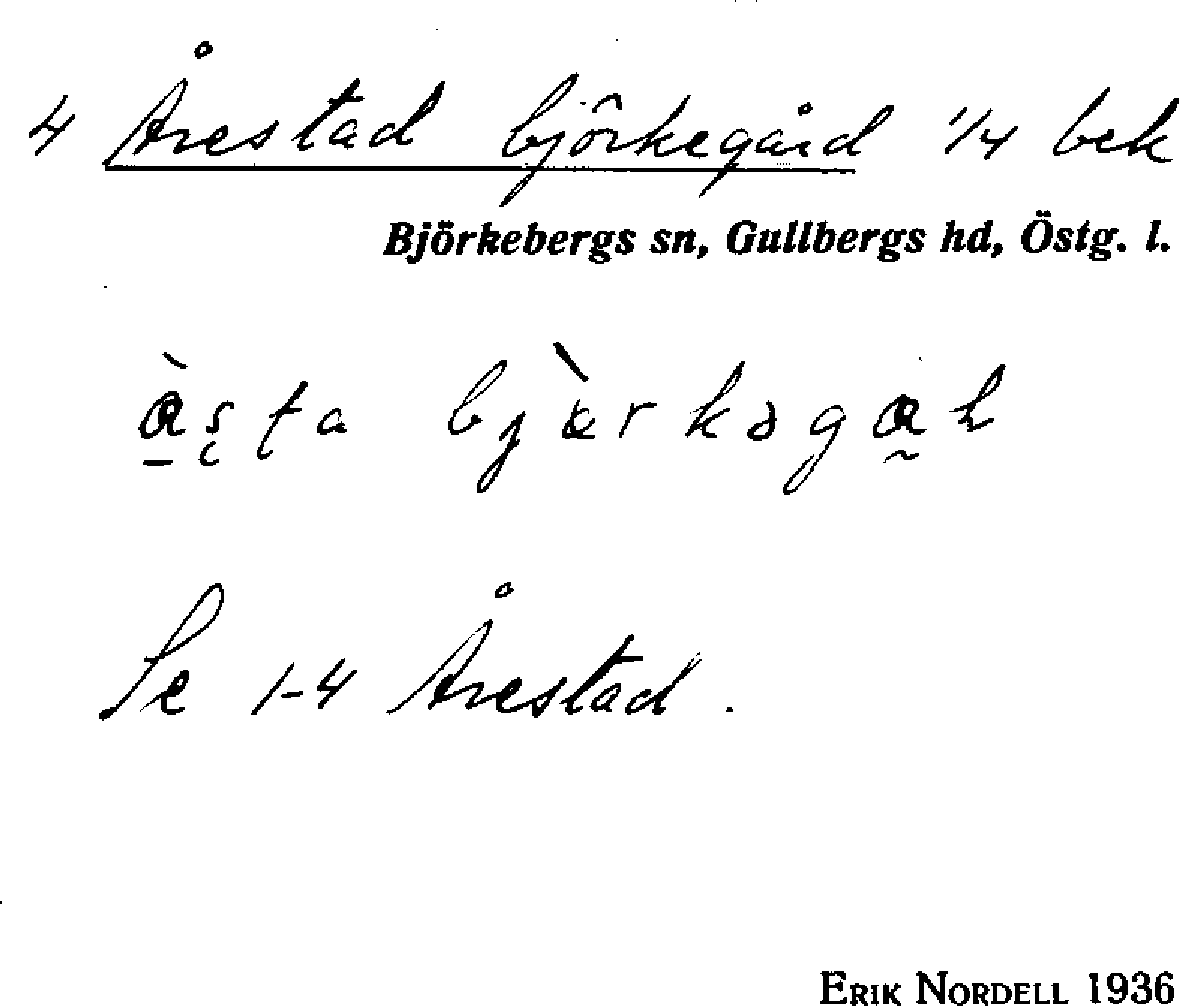 4 Årestad björkegård 1/4 bek
Björkebergs sn, Gullbergs hd, Östg. l.
Se 1-4 Årestad.
ERIK NORDELL 1936